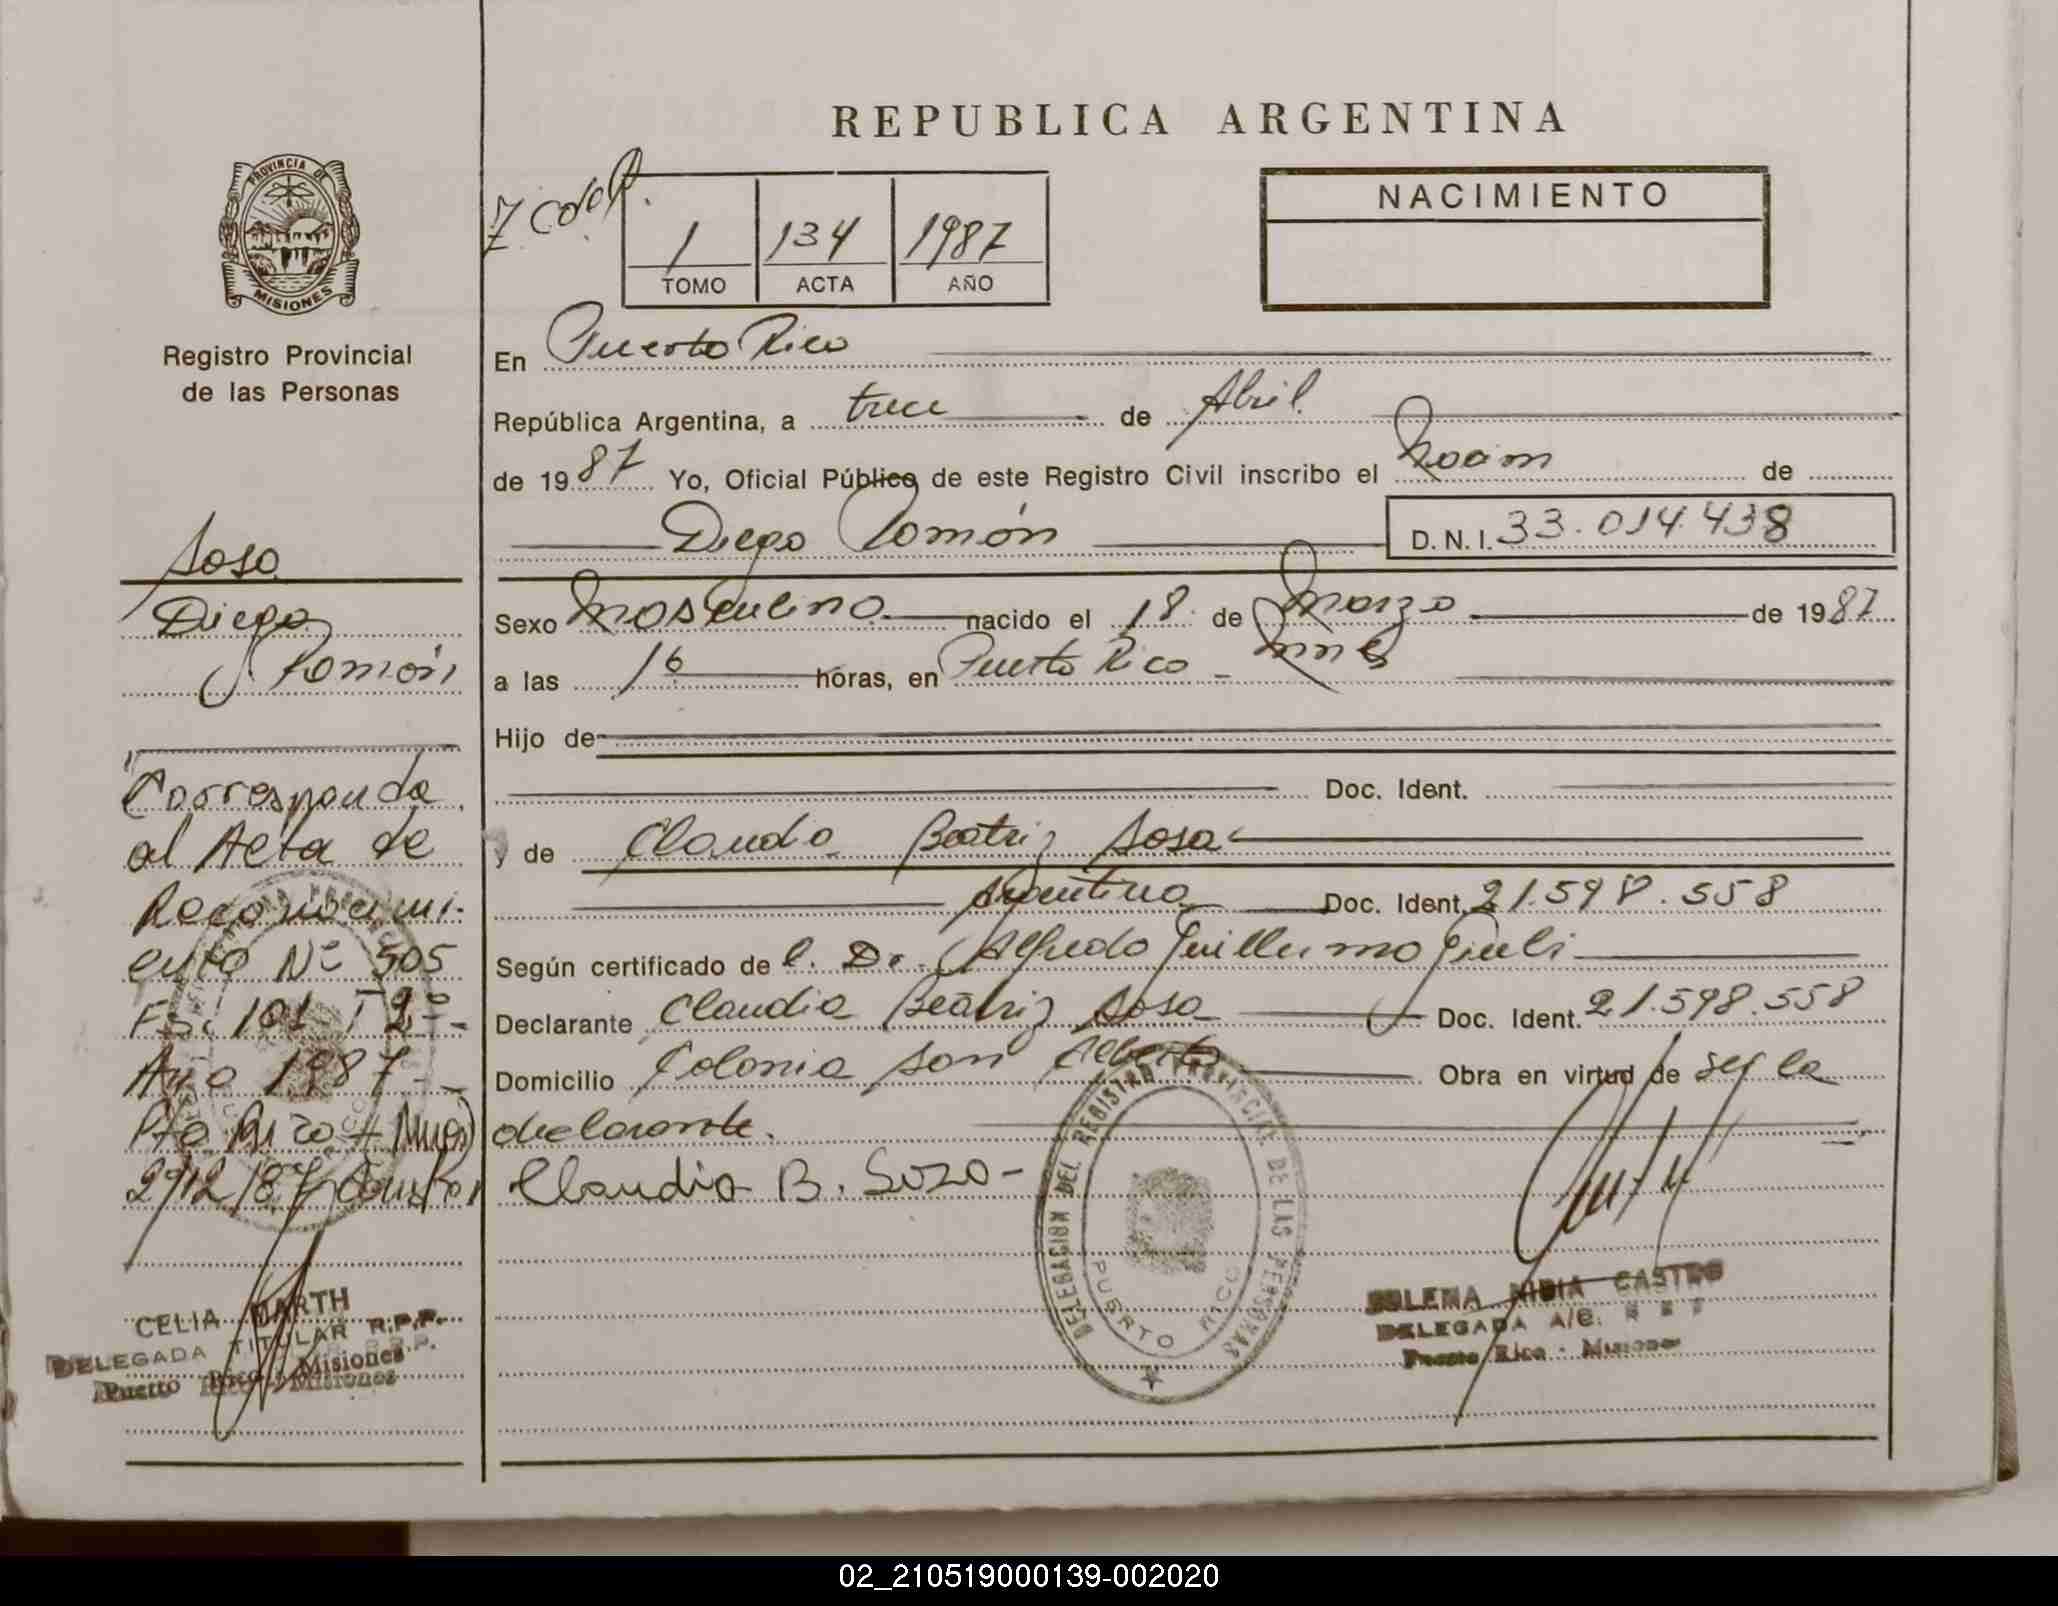 REPUBLICA ARGENTINA
PROVINCIA DE
MISIONES
Registro Provincial
de las Personas
1 134 1987
TOMO ACTA AÑO
NACIMIENTO
En Puerto Rico
República Argentina, a trece de Abril
de 1987 Yo, Oficial Público de este Registro Civil inscribo el de
Diego Ramón D.N.I. 33.014.438
Sexo Masculino nacido el 18 de Marzo de 1987
a las 16 horas, en Puerto Rico - Mnes
Hijo de
Doc. Ident.
y de Claudia Beatriz Sosa
Argentina Doc. Ident. 21.598.558
Según certificado de l. Dr. Alfredo Guillermo
Declarante Claudia Beatriz Sosa Doc. Ident. 21.598.558
Domicilio Colonia San Alberto Obra en virtud de ser la
declarante.
Claudia B. Sozo-
DELEGACION DEL REGISTRO PROVINCIAL DE LAS PERSONAS
PUERTO RICO
NIDIA CASTRO
DELEGADA A/C.
Puerto Rico - Misiones
Sosa
Diego
Ramón
"Corresponde
al Acta de
Reconocimi-
ento Nº 505
Fs. 101 T 2º -
Año 1987 - -
Pto Rico - Mnes)
29/12/87
CELIA MARTH
DELEGADA TITULAR R.P.P.
Puerto Rico - Misiones
02_210519000139-002020